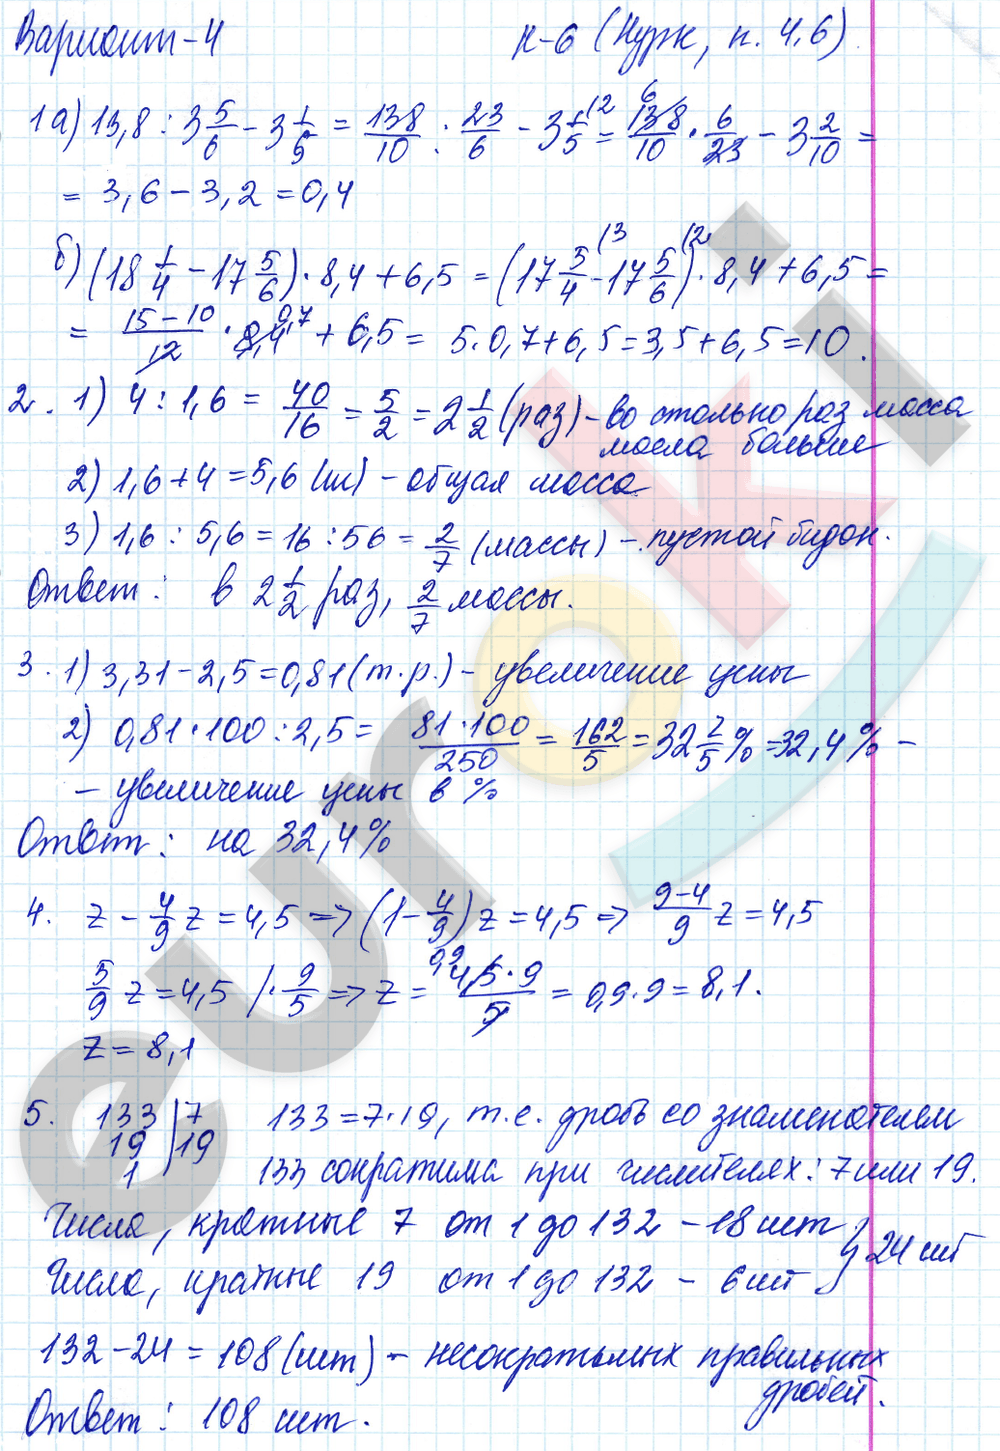 Вариант-4 К-6 (Нурк, п. 4,6)
1а) 13,8 : 3 5/6 - 3 1/5 = 138/10 : 23/6 - 3 1/5 = 138/10 · 6/23 - 3 2/10 =
= 3,6 - 3,2 = 0,4
б) (18 1/4 - 17 5/6) · 8,4 + 6,5 = (17 5/4 - 17 5/6) · 8,4 + 6,5 =
= (15-10)/12 · 8,4 + 6,5 = 5 · 0,7 + 6,5 = 3,5 + 6,5 = 10.
2. 1) 4 : 1,6 = 40/16 = 5/2 = 2 1/2 (раз) - во столько раз масса
масла больше
2) 1,6 + 4 = 5,6 (кг) - общая масса
3) 1,6 : 5,6 = 16 : 56 = 2/7 (массы) - пустой бидон.
Ответ: в 2 1/2 раз, 2/7 массы.
3. 1) 3,31 - 2,5 = 0,81 (т.р.) - увеличение цены
2) 0,81 · 100 : 2,5 = 81·100/250 = 162/5 = 32 2/5 % = 32,4 % -
- увеличение цены в %
Ответ: на 32,4 %
4. z - 4/9 z = 4,5 => (1 - 4/9) z = 4,5 => (9-4)/9 z = 4,5
5/9 z = 4,5 / · 9/5 => z = 4,5·9/5 = 0,9 · 9 = 8,1.
z = 8,1
5. 133 | 7 133 = 7 · 19, т.е. дробь со знаменателем
19 | 19
1 133 сократима при числителях: 7 или 19.
Числа, кратные 7 от 1 до 132 - 18 шт } 24 шт
Числа, кратные 19 от 1 до 132 - 6 шт
132 - 24 = 108 (шт) - несократимых правильных
дробей.
Ответ: 108 шт.
euroki